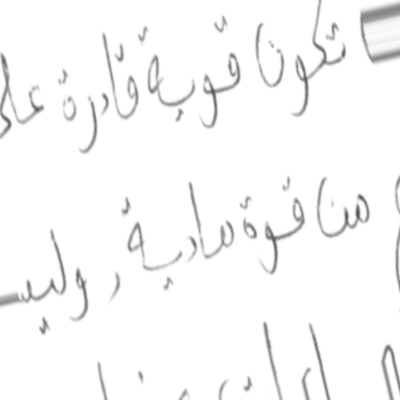 تكون قوية قادرة على
من قوة مادية, وليـ